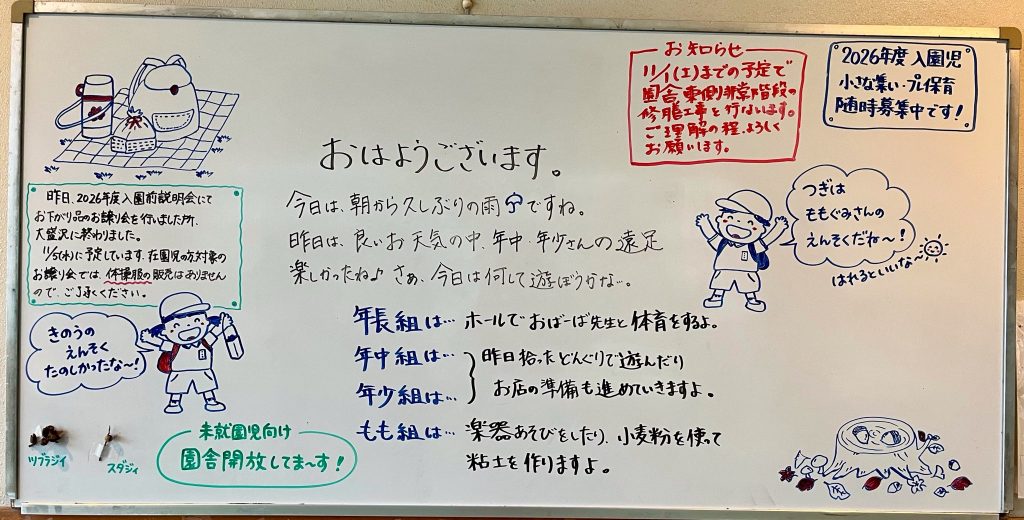 お知らせ
11/1(土)までの予定で
園舎東側非常階段の
修膳工事を行ないます。
ご理解の程、よろしく
お願います。
2026年度 入園児
小さな集い・プレ保育
随時募集中です!
おはようございます。
今日は、朝から久しぶりの雨ですね。
昨日は、良いお天気の中、年中・年少さんの遠足
楽しかったね♪ さあ、今日は何して遊ぼうかな…。
昨日、2026年度入園前説明会にて
お下がり品のお譲り会を行いました所、
大盛況に終わりました。
11/5(水)に予定しています、在園児の方対象の
お譲り会では、体操服の販売はありません
ので、ご了承ください。
つぎは
ももぐみさんの
えんそくだね〜!
はれるといいな〜
きのうの
えんそく
たのしかったな〜!
年長組は… ホールでおばーば先生と体育をするよ。
年中組は…
年少組は…
昨日拾ったどんぐりで遊んだり
お店の準備も進めていきますよ。
もも組は… 楽器あそびをしたり、小麦粉を使って
粘土を作りますよ。
ツブラジイ
スダジイ
未就園児向け
園舎開放してま〜す!